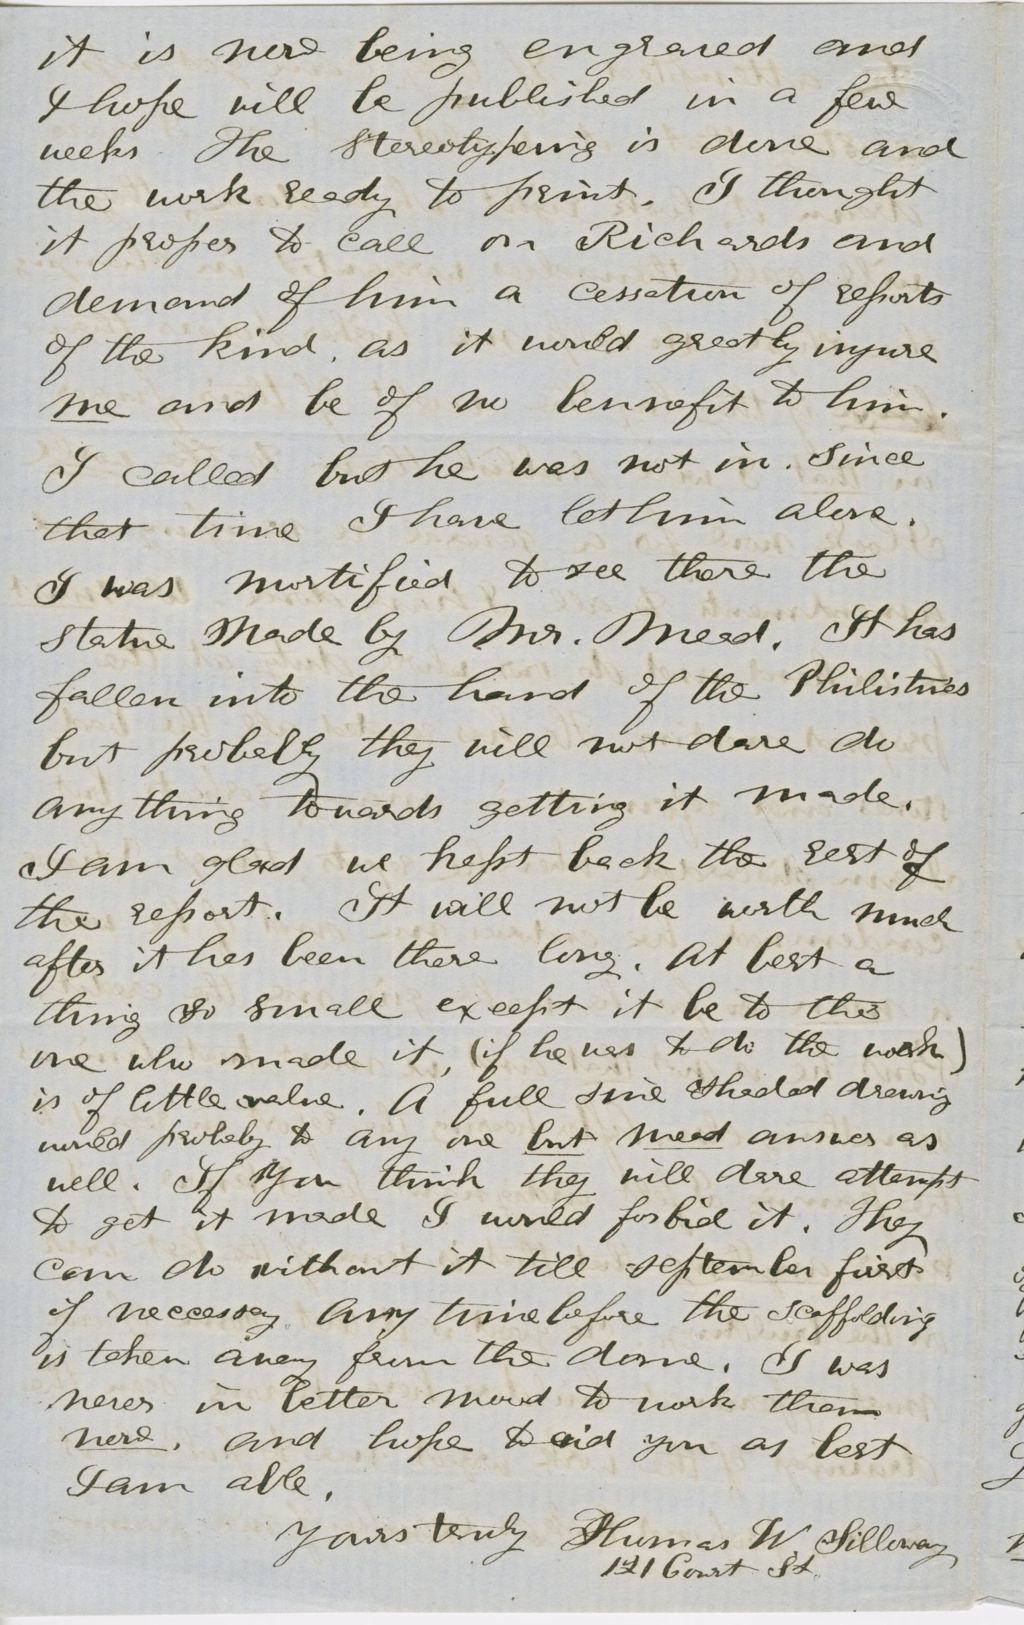 it is now being engraved and
I hope will be published in a few
weeks The Stereotypeing is done and
the work ready to print. I thought
it proper to call on Richards and
demand of him a cessation of reports
of the kind, as it would greatly injure
me and be of no bennefit to him.
I called but he was not in. Since
that time I have let him alone.
I was mortified to see there the
Statue Made by Mr. Mead. It has
fallen into the hand of the Philistines
but probelly they will not dare do
any thing towards getting it made.
I am glad we kept back the rest of
the report. It will not be worth much
after it has been there long. At best a
thing so small except it be to the
one who made it, (if he was to do the work)
is of little value. A full sine shaded drawing
would probaly to any one but Mead answer as
well. If You think they will dare attempt
to get it made I would forbid it. They
can do without it till september first
if neccessay any time before the scaffolding
is taken away from the dome. I was
never in better mood to work than
now. and hope to aid you as best
I am able.
Yours truly Thomas W. Silloway
121 Court St.